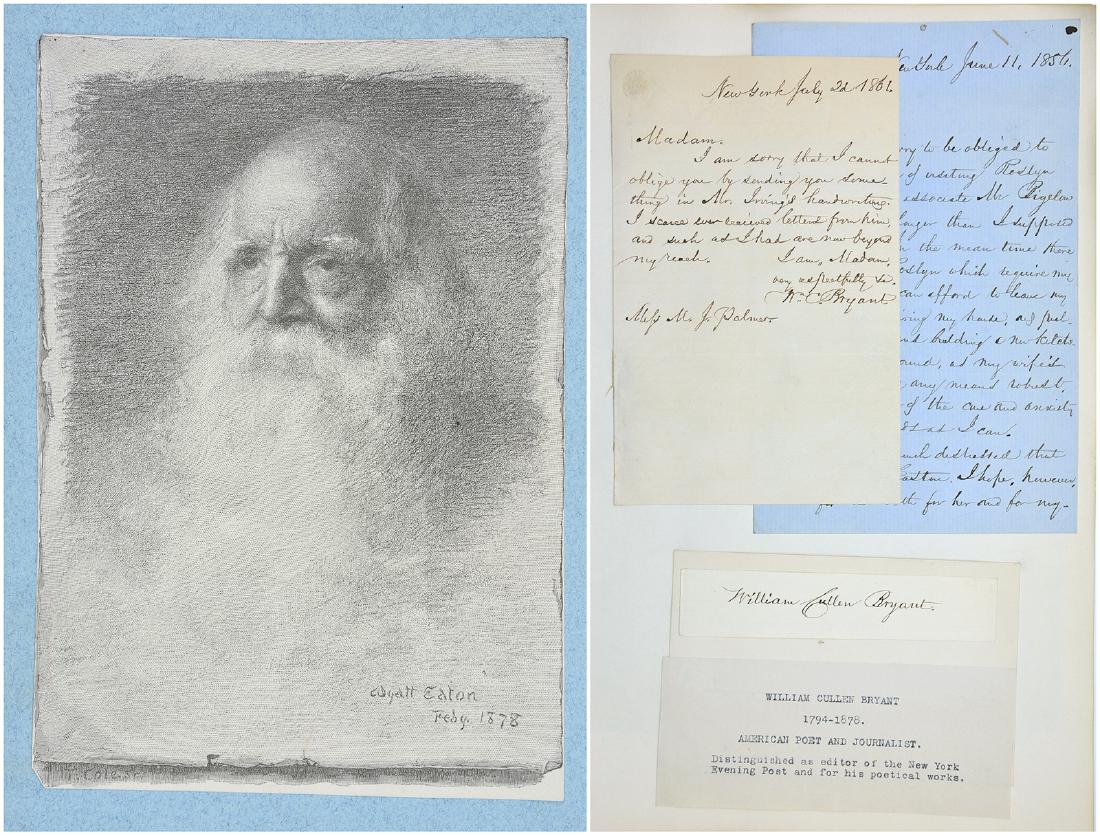 Wyatt Eaton
Feby. 1878
T. Cole Sc.
New York July 2d 1861.
Madam.
I am sorry that I cannot
oblige you by sending you some-
thing in Mr. Irving's handwriting.
I scarce ever received letters from him,
and such as I had are now beyond
my reach. I am, Madam,
very respectfully &c.
Wm. C. Bryant
Miss M. J. Palmer.
York June 11, 1856.
to be obliged to
of visiting Roslyn
associate Mr Bigelow
longer than I supposed
the mean time there
Roslyn which require my
can afford to leave my
my house, and
building a new kitch-
as my wife's
any means robust,
of the care and anxiety
as I can.
much distressed that
I hope, however,
for her and for my-
William Cullen Bryant.
WILLIAM CULLEN BRYANT
1794-1878.
AMERICAN POET AND JOURNALIST.
Distinguished as editor of the New York
Evening Post and for his poetical works.